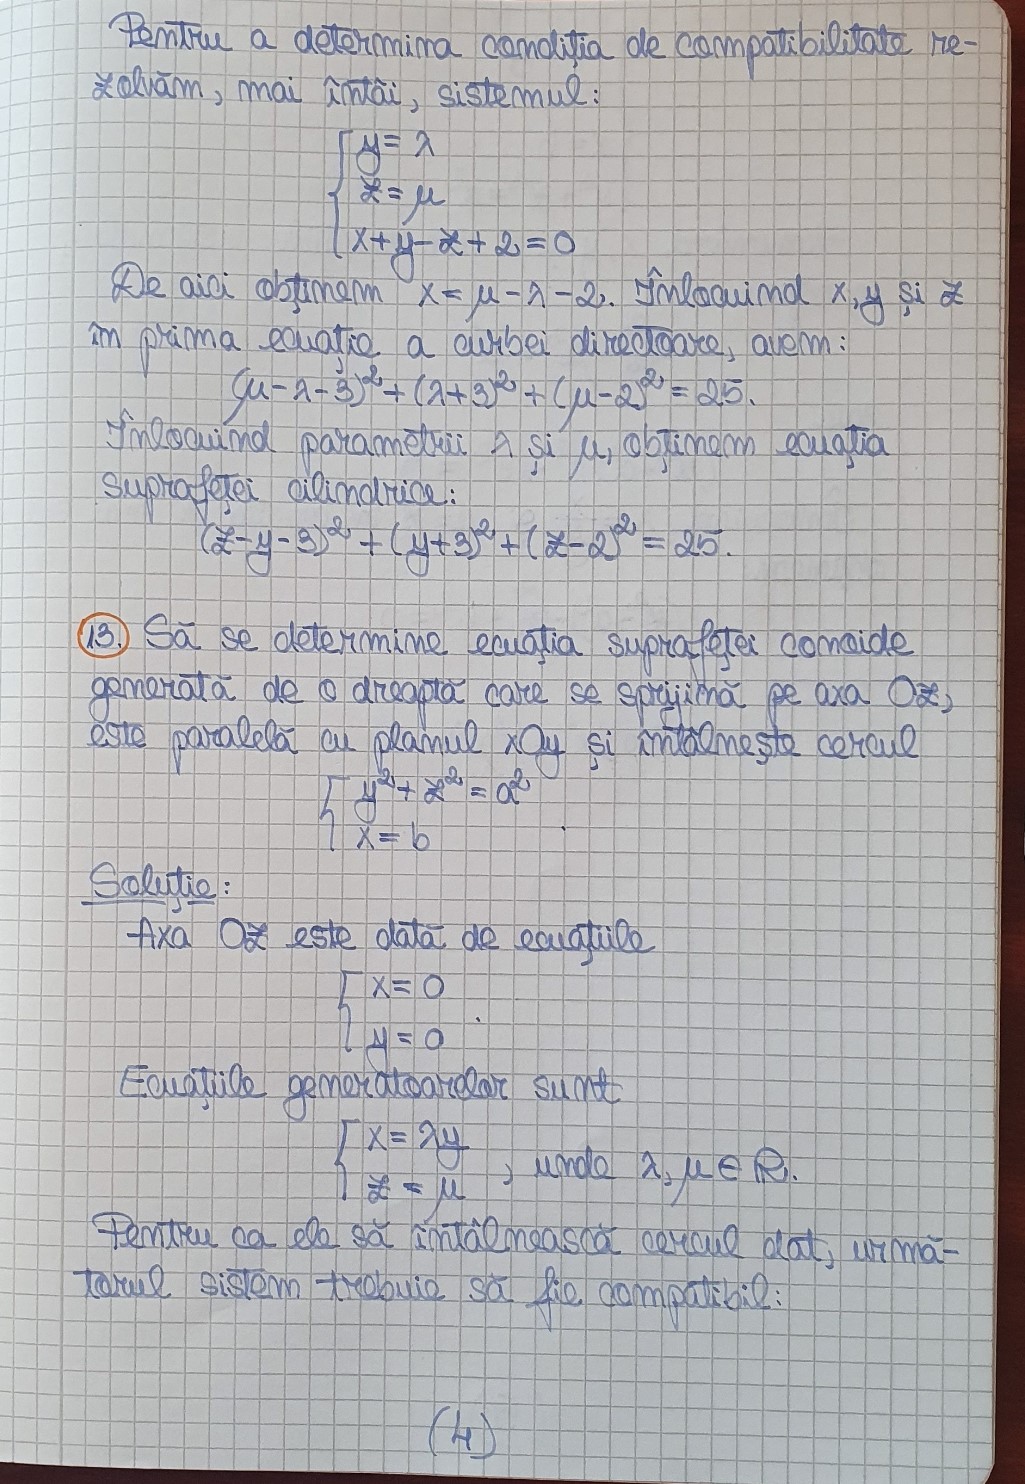 Pentru a determina condiția de compatibilitate re-
zolvăm, mai întâi, sistemul:
y = λ
z = μ
x+y-z+2=0
De aici obținem x = μ-λ-2. Înlocuind x, y și z
în prima ecuație a curbei directoare, avem:
(μ-λ-3)²+(λ+3)²+(μ-2)²=25.
Înlocuind parametrii λ și μ, obținem ecuația
suprafeței cilindrice:
(z-y-3)²+(y+3)²+(z-2)²=25.
13. Să se determine ecuația suprafeței conoide
generată de o dreaptă care se sprijină pe axa Oz,
este paralelă cu planul xOy și întâlnește cercul
y²+z²=a²
x=b
Soluție:
Axa Oz este dată de ecuațiile
x=0
y=0
Ecuațiile generatoarelor sunt
x=λy
z=μ , unde λ, μ ∈ ℝ.
Pentru ca ele să întâlnească cercul dat, urmă-
torul sistem trebuie să fie compatibil:
(4)